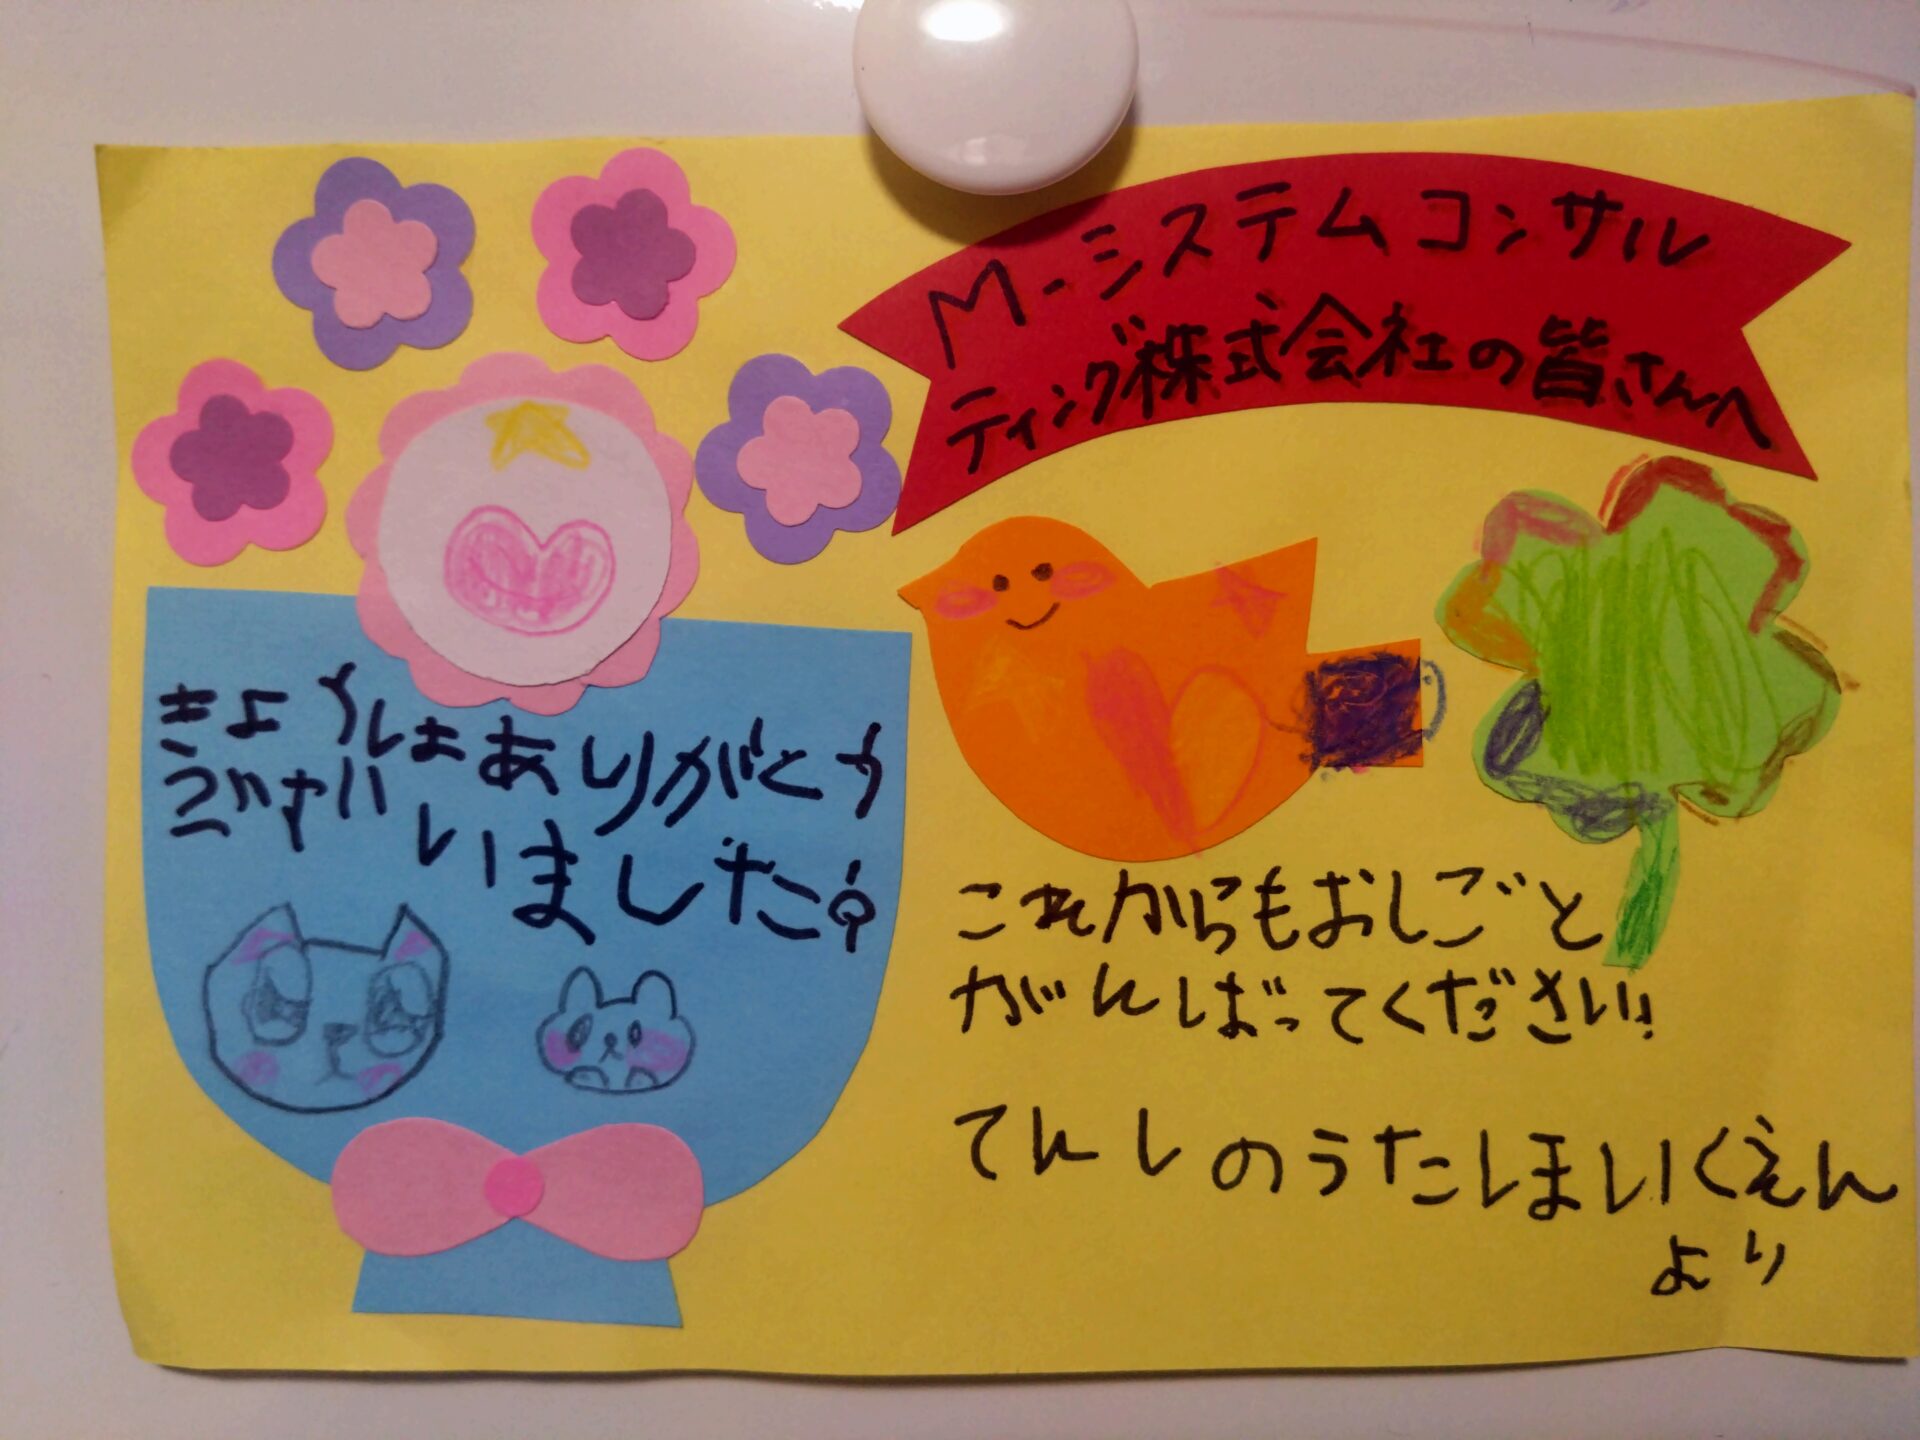 M-システムコンサル
ティング株式会社の皆さんへ
きょうはありがとう
ございました
これからもおしごと
がんばってください!
てんしのうたしほいくえん
より